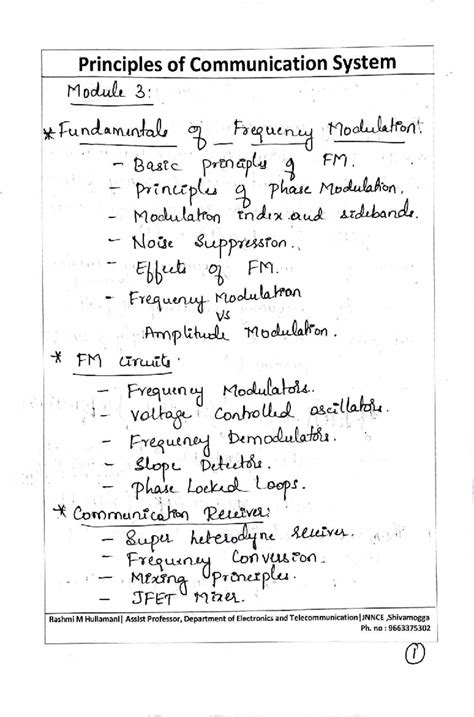 Principles of Communication System
Module 3:
* Fundamentals of Frequency Modulation:
- Basic principles of FM.
- Principles of Phase Modulation.
- Modulation index and sidebands.
- Noise Suppression.
- Effects of FM.
- Frequency Modulation
vs
Amplitude Modulation.
* FM Circuits.
- Frequency Modulators.
- Voltage Controlled oscillators.
- Frequency Demodulators.
- Slope Detectors.
- Phase Locked Loops.
* Communication Receiver:
- Super heterodyne receiver.
- Frequency Conversion.
- Mixing principles.
- JFET Mixer.
Rashmi M Hullamani| Assist Professor, Department of Electronics and Telecommunication|JNNCE ,Shivamogga
Ph. no : 9663375302
1